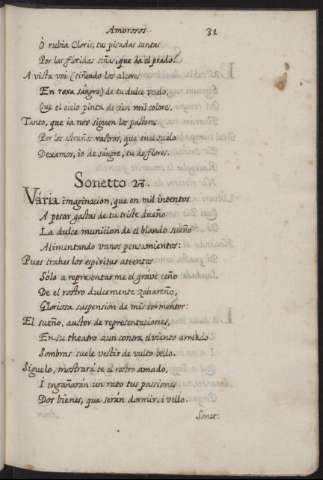 Amorosos 31
O rubia Cloris, tus pisadas cuntas
Por las floridas señas, que da el prado.
A vista voi (tiñendo los alcores
En roxa sangre) de tu dulce vuelo,
Que el cielo pinta de cien mil colores,
Tanto, que ia nos siguen los pastores
Por los estraños rastros, que en el suelo
Dexamos, io de sangre, tu de flores.
Sonetto 23.
Varia imaginacion, que en mil intentos
A pesar gastas de tu triste dueño
La dulce municion de el blando sueño
Alimentando vanos pensamientos:
Pues trahes los espiritus attentos
Sólo a representarme el grave ceño
De el rostro dulcemente zahareño,
Gloriosa suspension de mis tormentos:
El sueño, auctor de representaciones,
En su theatro sobre el viento armado
Sombras suele vestir de vulto bello.
Siguelo, mostrarà te el rostro amado,
I engañarán un rato tus passiones
Dos bienes, que serán dormir, i vello.
Sonet.